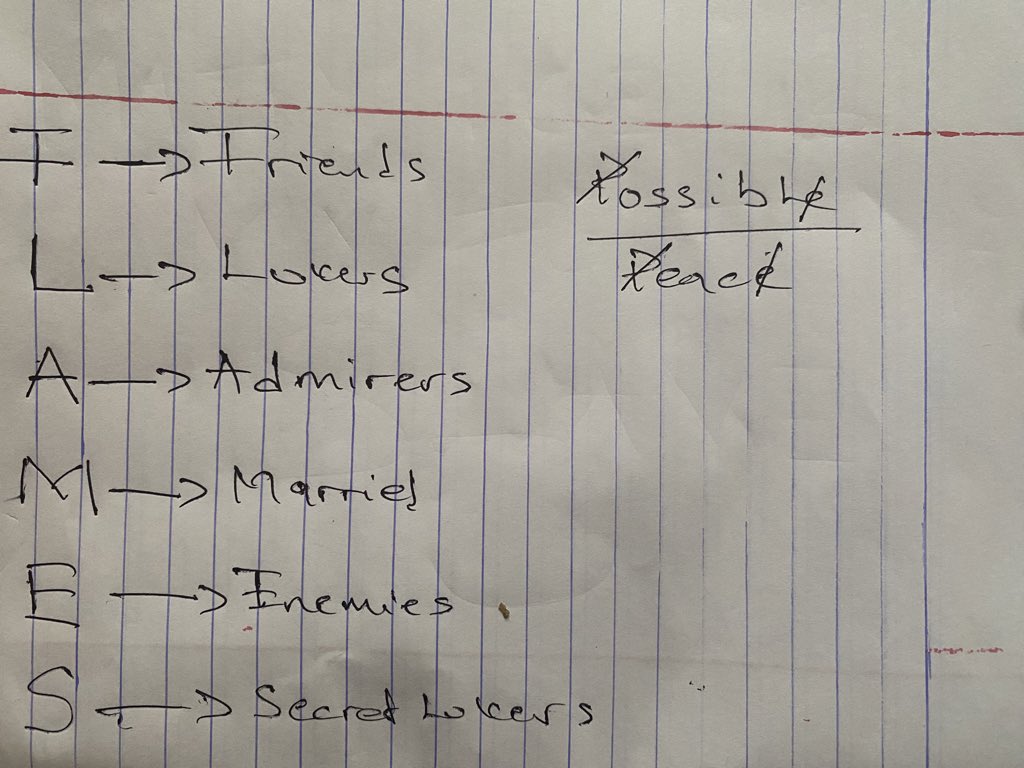 F → Friends
L → Lovers
A → Admirers
M → Married
E → Enemies
S → Secret Lovers
Possible
Peace